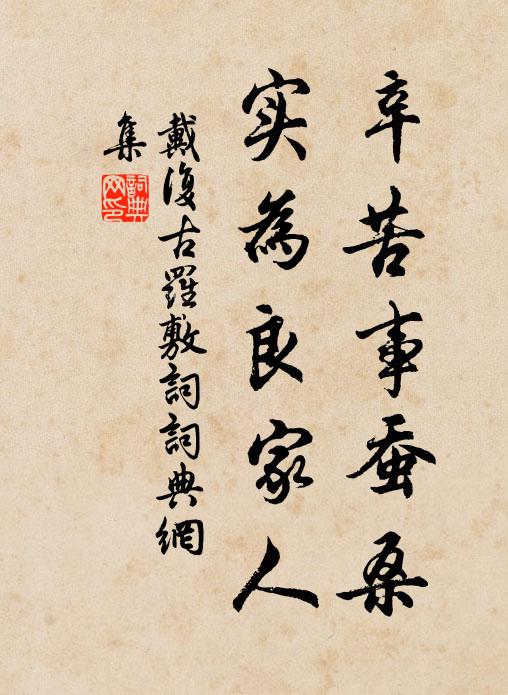 辛苦事蚕桑
实為良家人
戴復古羅敷詞詞典網
集
詞典网印